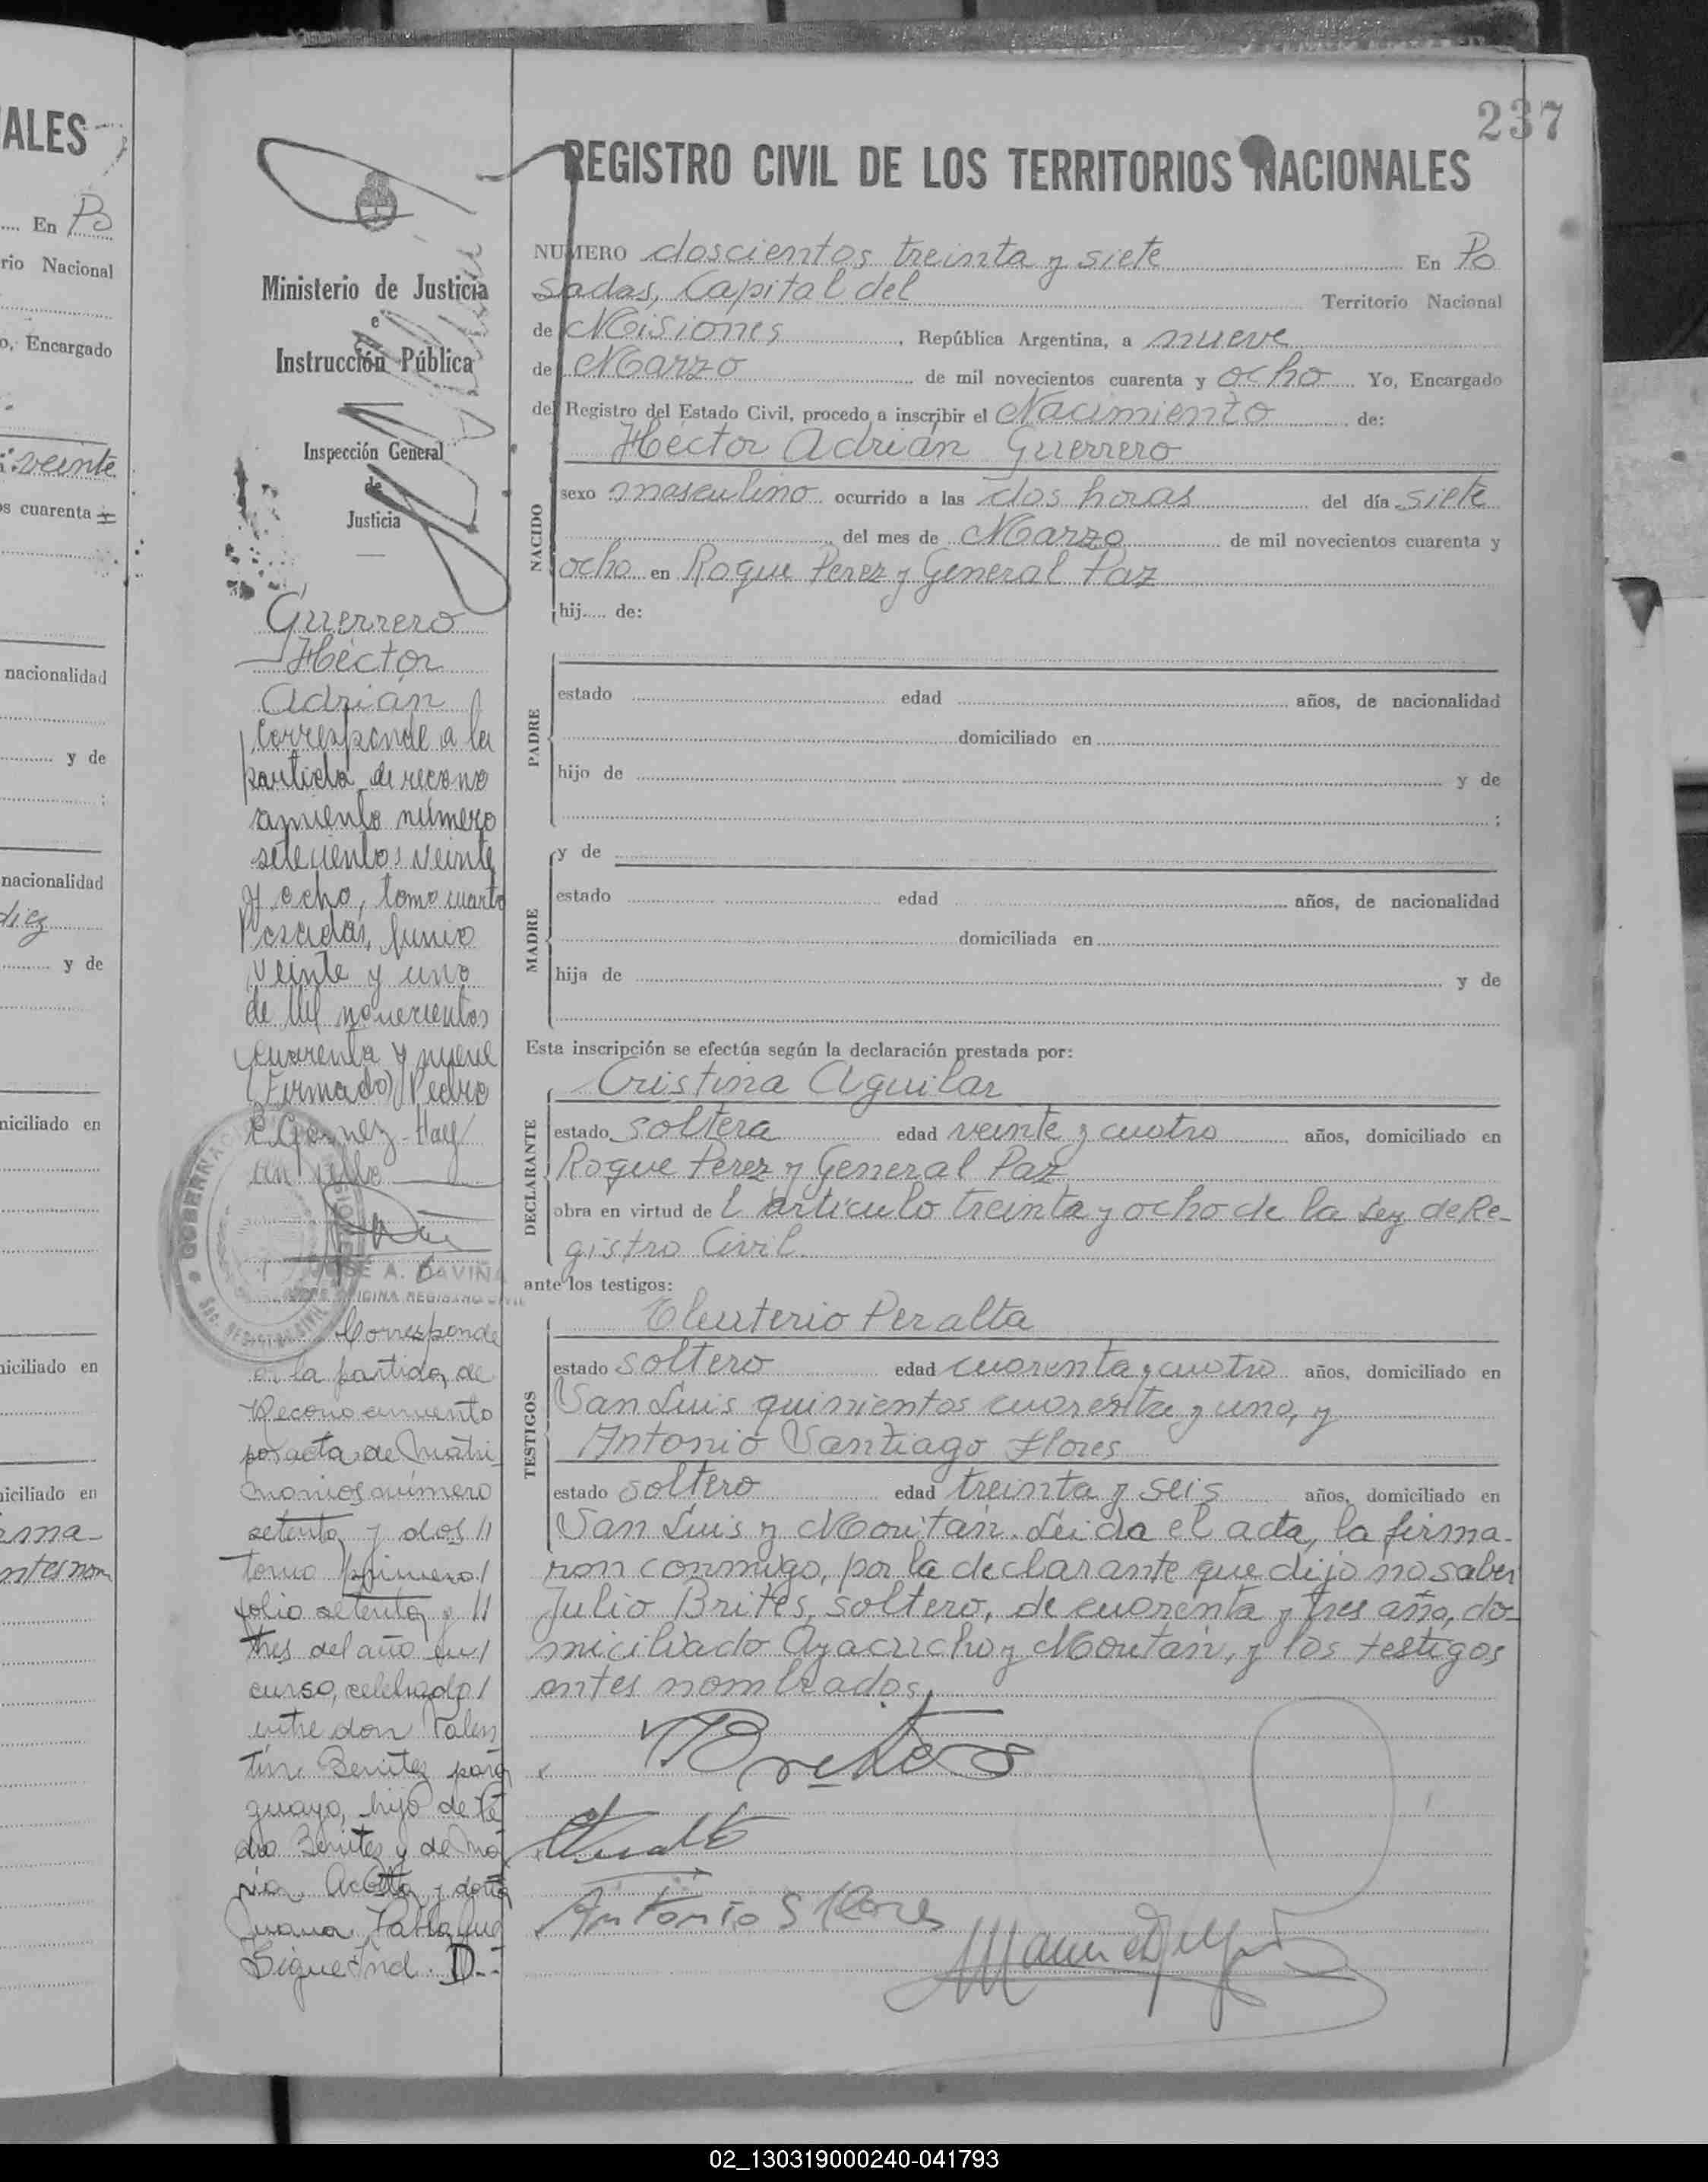 ALES
En Po
rio Nacional
o, Encargado
veinte
os cuarenta
nacionalidad
y de
nacionalidad
diez
y de
miciliado en
iciliado en
iciliado en
irma-
antes nom
237
REGISTRO CIVIL DE LOS TERRITORIOS NACIONALES
Ministerio de Justicia
e
Instrucción Pública
Inspección General
de
Justicia
Guerrero
Héctor
Adrián
Corresponde a la
partida de recono
cimiento número
setecientos veinte
y ocho, tomo cuarto
Posadas, Junio
veinte y uno
de Mil novecientos
cuarenta y nueve
(Firmado) Pedro
Hay
un sello
GOBERNAC
JOSE A. DAVIÑA
OFICINA REGISTRO CIVIL
Corresponde
a la partida de
Reconocimiento
por acta de Matri
monios número
setenta y dos //
tomo primero /
folio setenta y //
tres del año en /
curso, celebrado /
entre don Valen
tin Benitez para
guayo, hijo de Pe
dro Benitez y de Ma
ria Acosta y doña
Juana
Sigue Ind. D.-
NUMERO doscientos treinta y siete En Po
sadas, Capital del Territorio Nacional
de Misiones, República Argentina, a nueve
de Marzo de mil novecientos cuarenta y ocho Yo, Encargado
del Registro del Estado Civil, procedo a inscribir el Nacimiento de:
Héctor Adrián Guerrero
NACIDO
sexo masculino ocurrido a las dos horas del día siete
del mes de Marzo de mil novecientos cuarenta y
ocho en Roque Perez y General Paz
hij.... de:
PADRE
estado edad años, de nacionalidad
domiciliado en
hijo de y de
;
MADRE
y de
estado edad años, de nacionalidad
domiciliada en
hija de y de
Esta inscripción se efectúa según la declaración prestada por:
Cristina Aguilar
DECLARANTE
estado soltera edad veinte y cuatro años, domiciliado en
Roque Perez y General Paz
obra en virtud de l artículo treinta y ocho de la Ley de Re-
gistro Civil
ante los testigos:
Eleuterio Peralta
TESTIGOS
estado soltero edad cuarenta y cuatro años, domiciliado en
San Luis quinientos cuarenta y uno, y
Antonio Santiago Flores
estado soltero edad treinta y seis años, domiciliado en
San Luis y Moután. Leida el acta, la firma-
ron conmigo, por la declarante que dijo no saber
Julio Brites, soltero, de cuarenta y tres año, do-
miciliado Ayacucho y Moután, y los testigos
antes nombrados.
Brites
Antonio S Flores
02_130319000240-041793